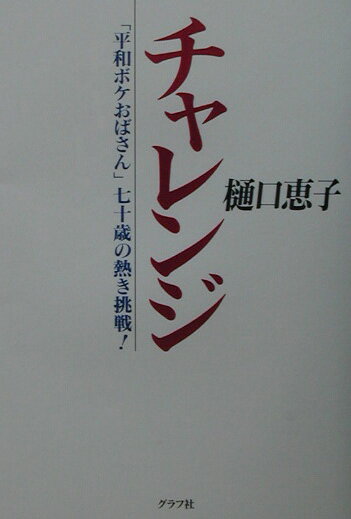 チャレンジ
「平和ボケおばさん」七十歳の熱き挑戦!
樋口恵子
グラフ社